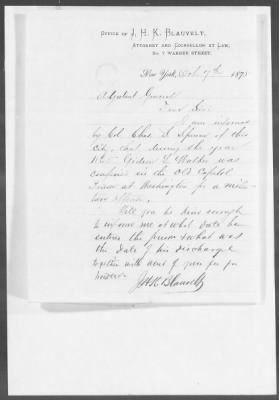 OFFICE OF J. H. K. BLAUVELT,
ATTORNEY AND COUNSELLOR AT LAW,
No. 7 WARREN STREET.
New York, 7th 187
Adjutant General
Dear Sir:
I am informed
by Col. Chas. D. of this
city, that during the year
L. Walker was
confined in the Old Capitol
Prison at Washington for a
offense.
Will you be kind enough
to inform me at what date he
entered the prison & what was
the date of his discharge
together with of your fee for
J H K Blauvelt